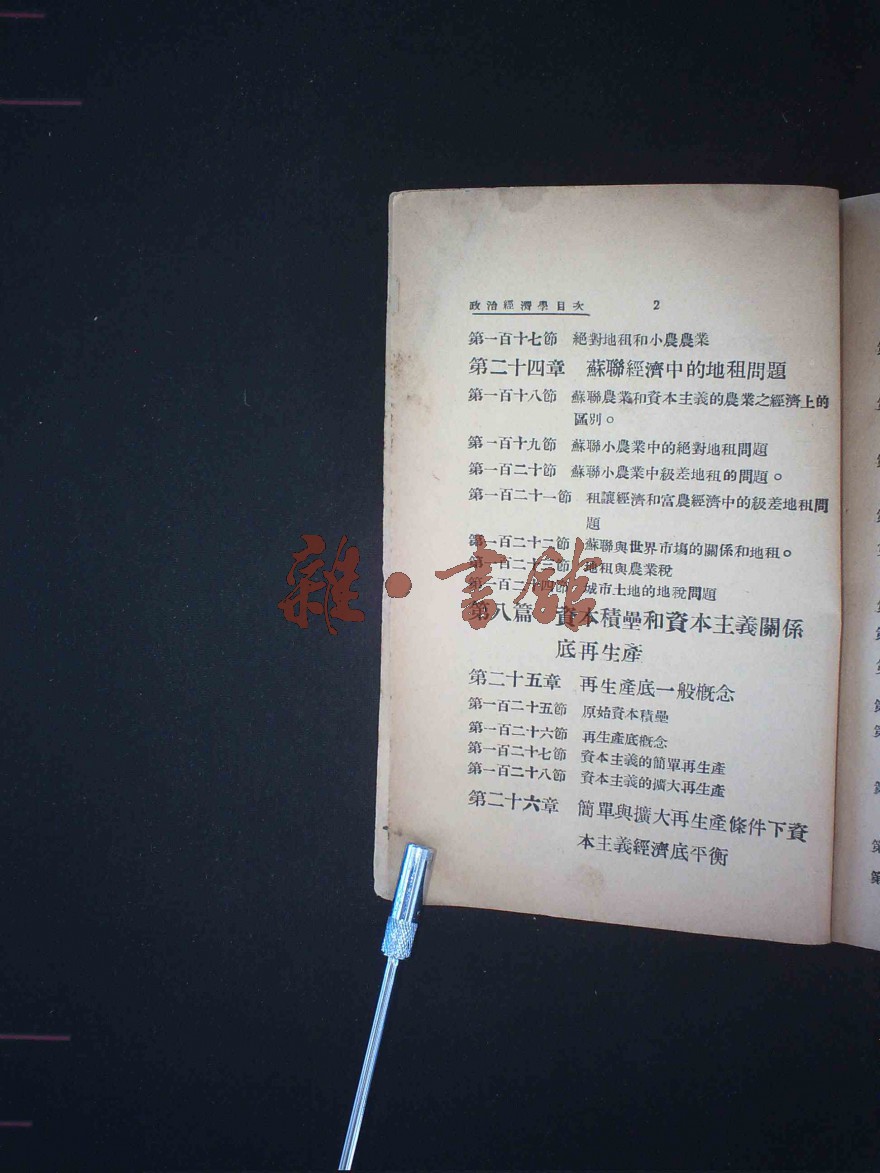 政治經濟學目次 2
第一百十七節 絕對地租和小農農業
第二十四章 蘇聯經濟中的地租問題
第一百十八節 蘇聯農業和資本主義的農業之經濟上的
區別。
第一百十九節 蘇聯小農業中的絕對地租問題
第一百二十節 蘇聯小農業中級差地租的問題。
第一百二十一節 租讓經濟和富農經濟中的級差地租問
題
第一百二十二節 蘇聯與世界市塲的關係和地租。
第一百二十三節 地租與農業稅
第一百二十四節 城市土地的地稅問題
第八篇 資本積壘和資本主義關係
底再生產
第二十五章 再生產底一般概念
第一百二十五節 原始資本積壘
第一百二十六節 再生產底概念
第一百二十七節 資本主義的簡單再生產
第一百二十八節 資本主義的擴大再生產
第二十六章 簡單與擴大再生產條件下資
本主義經濟底平衡
雜·書館